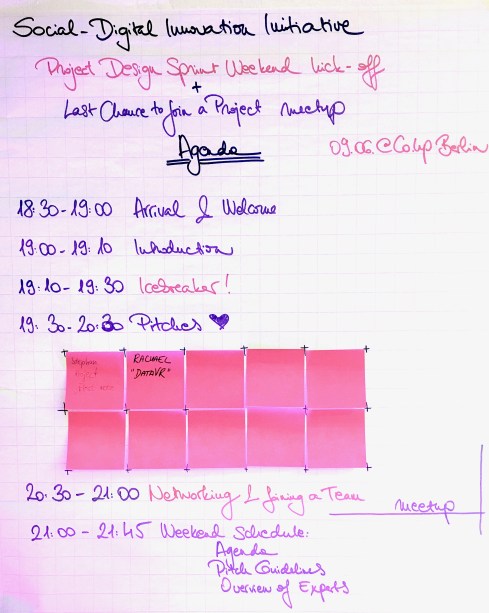 Social-Digital Innovation Initiative
Project Design Sprint Weekend kick-off
+
Last Chance to Join a Project meetup
Agenda
09.06. @ CoUp Berlin
18:30-19:00 Arrival & Welcome
19:00-19:10 Introduction
19:10-19:30 Icebreaker!
19:30-20:30 Pitches ♥
RACHAEL
"DATAVR"
20:30-21:00 Networking & Joining a Team
meetup
21:00-21:45 Weekend Schedule:
Agenda
Pitch Guidelines
Overview of Experts